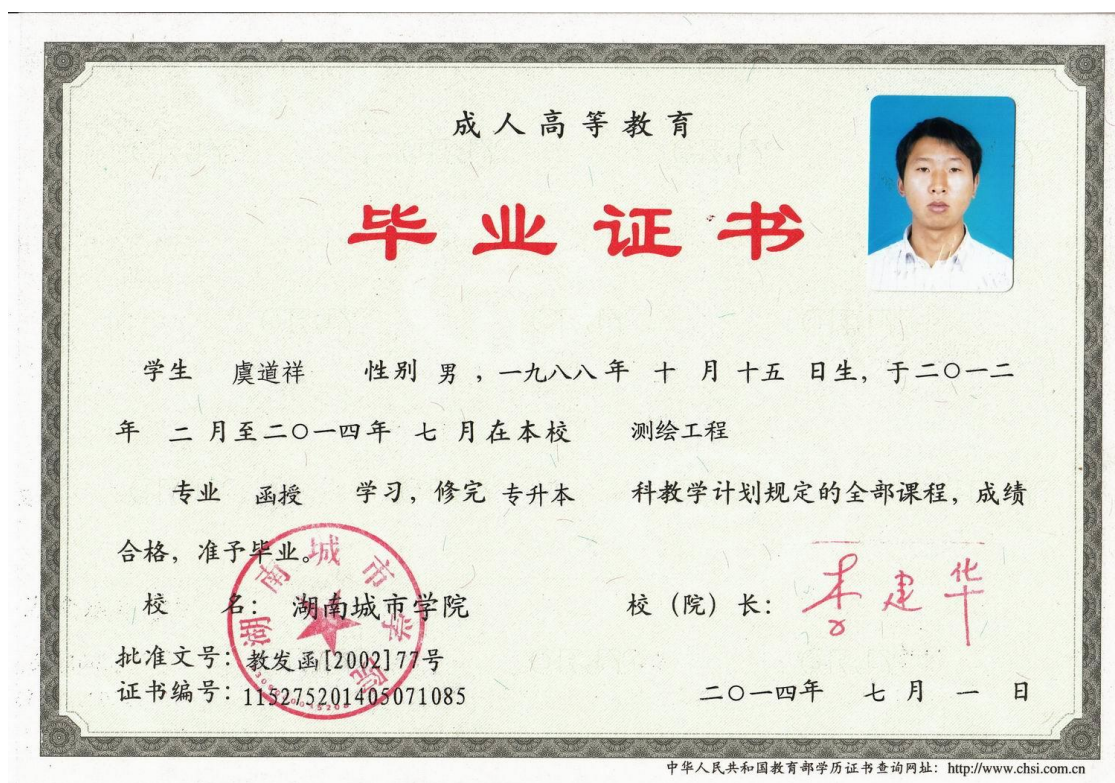 成人高等教育
毕业证书
学生 虞道祥 性别 男 ，一九八八年 十 月 十五 日生，于二〇一二
年 二 月至二〇一四年 七 月在本校 测绘工程
专业 函授 学习，修完 专升本 科教学计划规定的全部课程，成绩
合格，准予毕业。
校 名：湖南城市学院 校（院）长：李建华
批准文号：教发函[2002]77号
证书编号：115275201405071085 二〇一四年 七 月 一 日
湖南城市学院
中华人民共和国教育部学历证书查询网址：http://www.chsi.com.cn